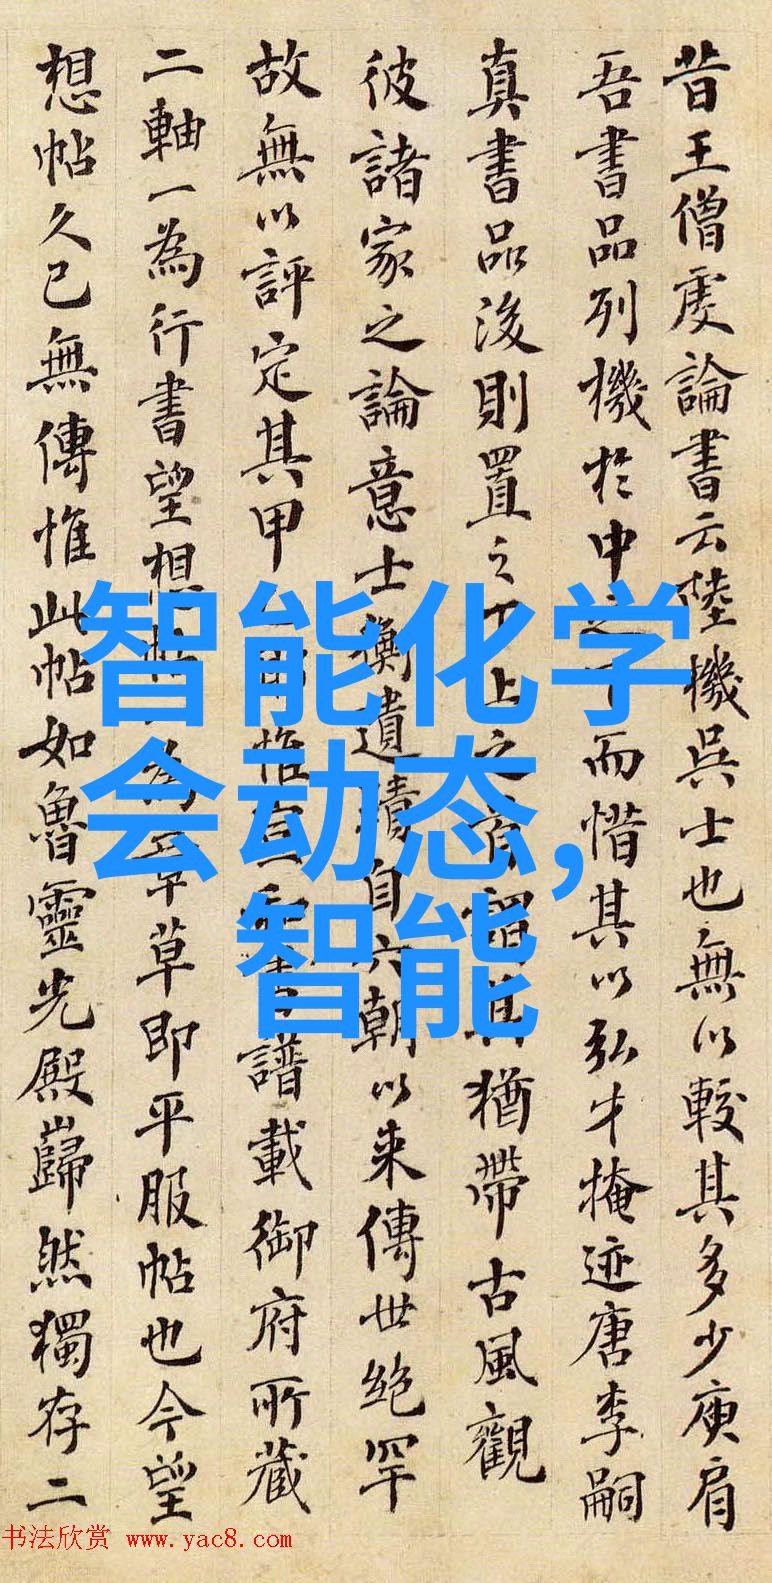 昔王僧虔論書云陸機吳士也無以較其多少庾肩
吾書品列機於中之下而惜其以弘才掩迹唐李嗣
真書品後則置之下上之有謂其猶帶古風觀
彼諸家之論意士衡遺蹟自六朝以来傳世絶罕
故無以評定其甲惟宣和書譜載御府所藏
二軸一為行書望想帖一為章草即平服帖也今望
想帖久已無傳惟此帖如魯靈光殿巋然獨存二
智能化学
会动态,
智能
书法欣赏 www.yac8.com